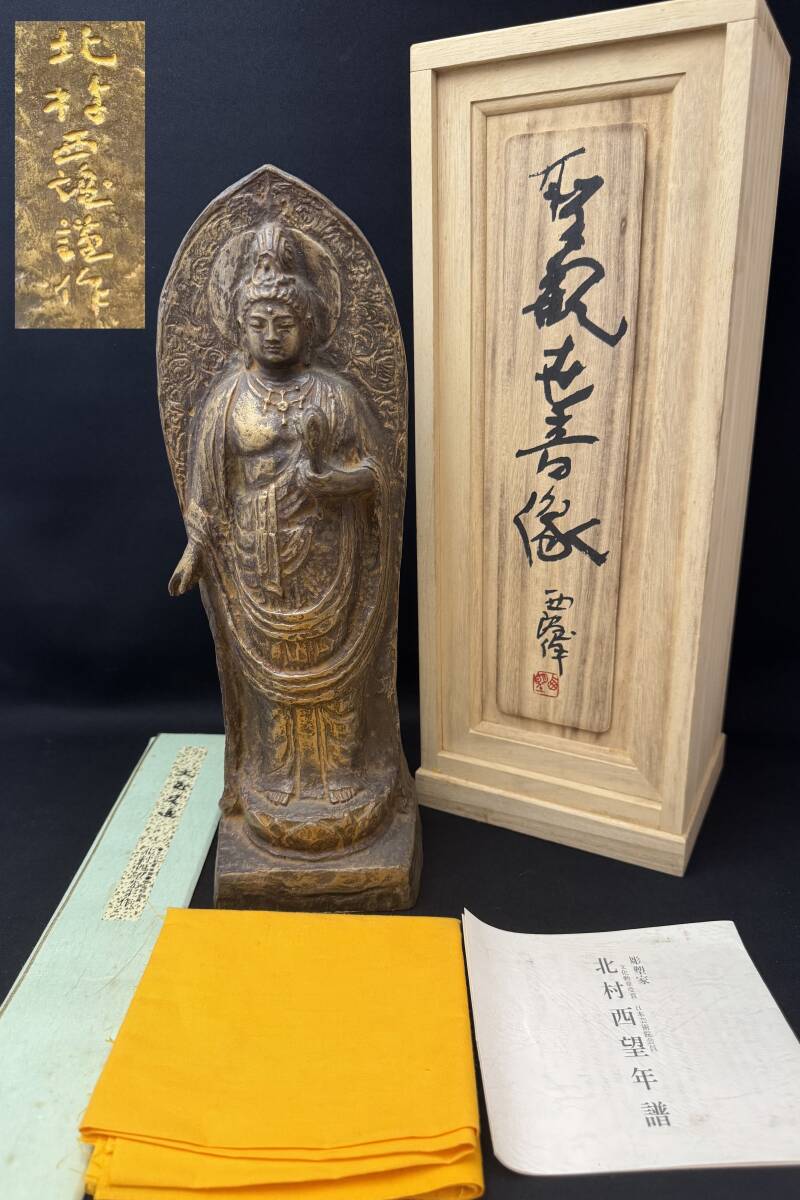 北村西望謹作
聖観世音像
西望作
彫塑家
文化勲章受賞 日本芸術院会員
北村西望年譜